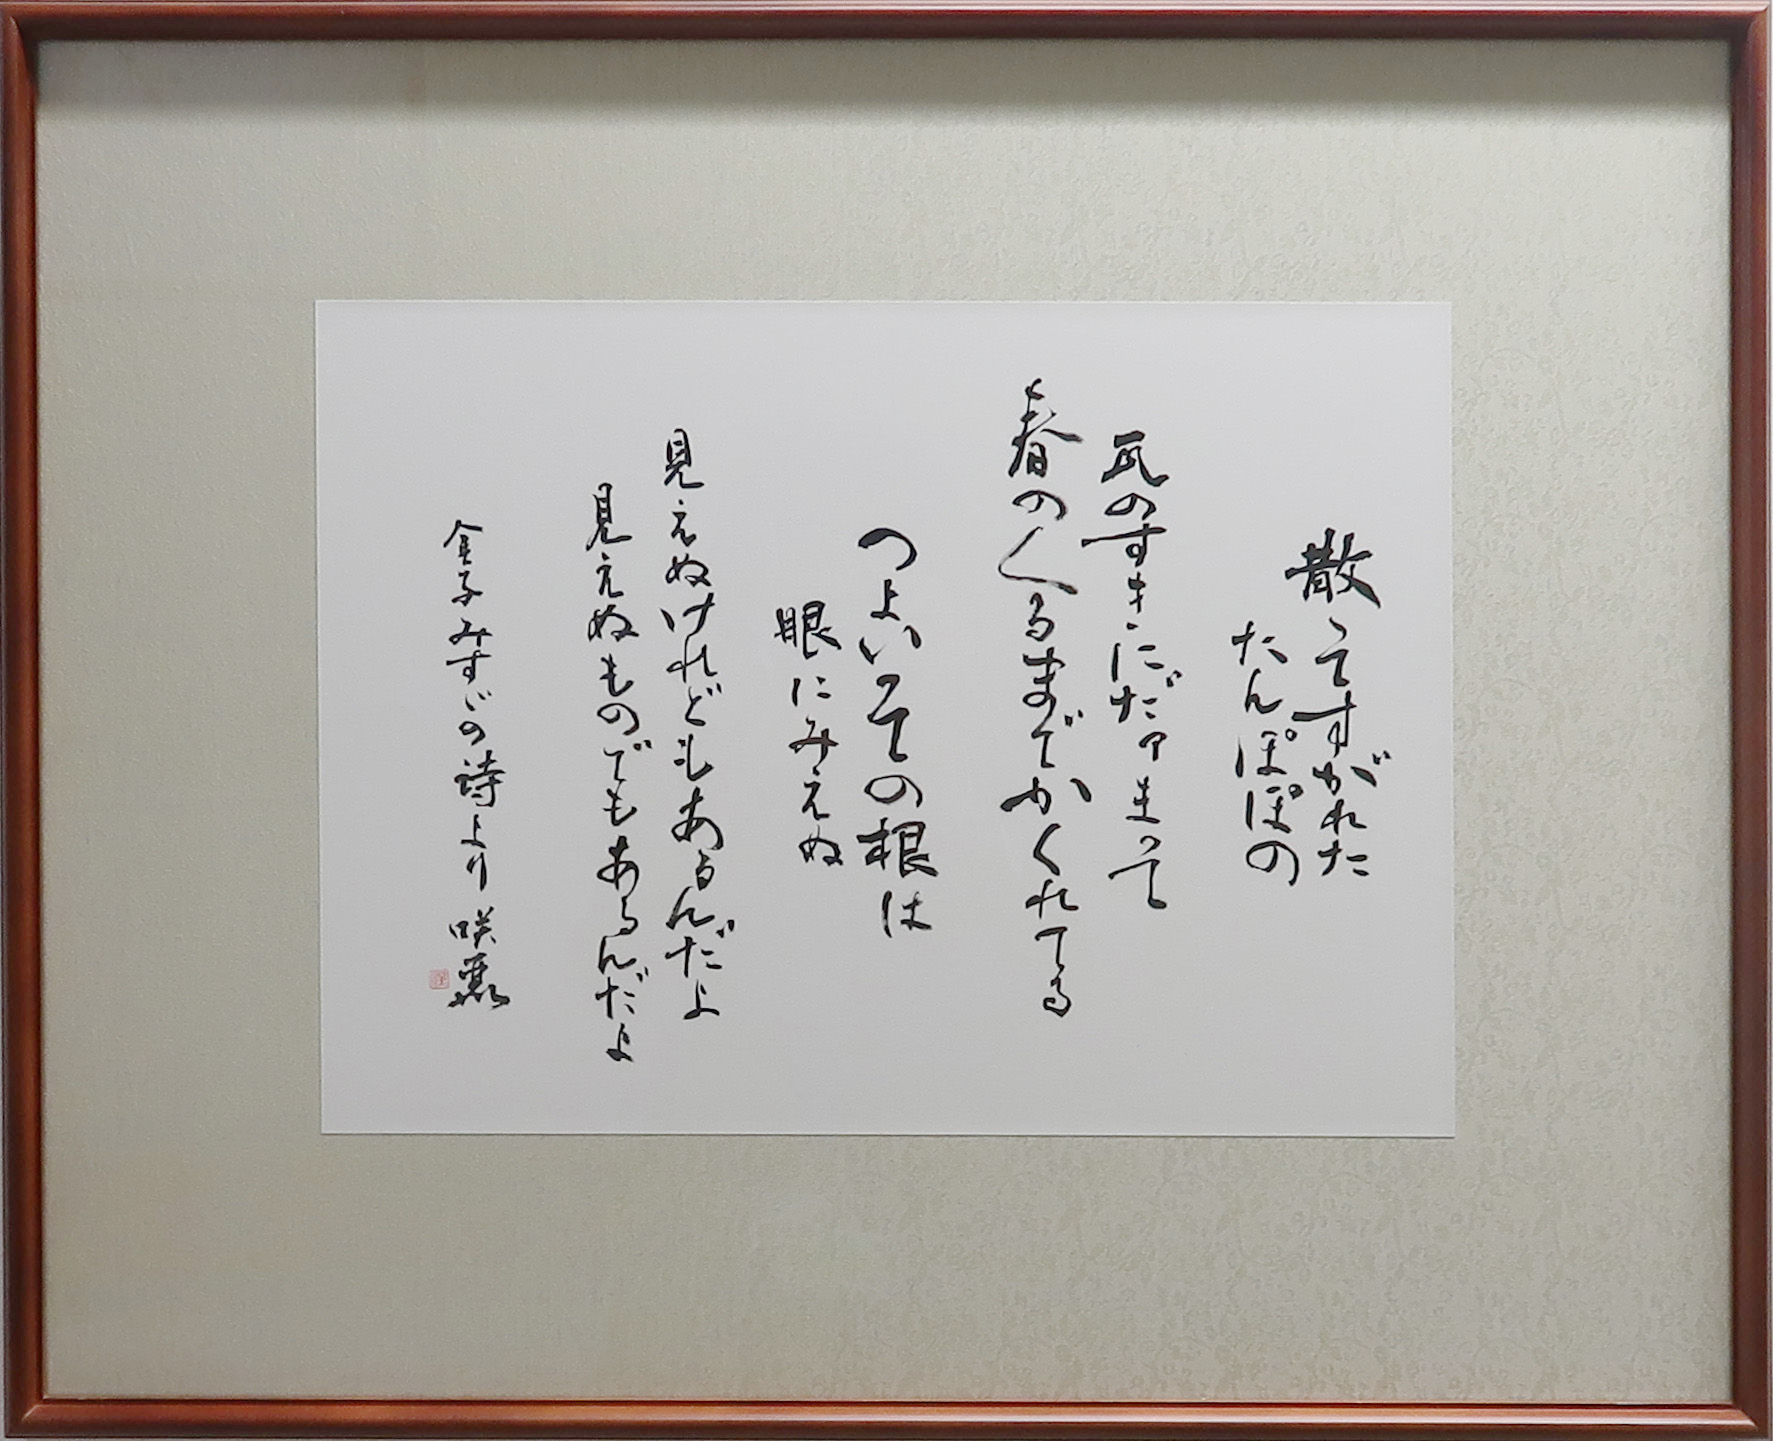 散ってすがれた
たんぽぽの
瓦のすきにだァまって
春のくるまでかくれてる
つよいその根は
眼にみえぬ
見えぬけれどもあるんだよ
見えぬものでもあるんだよ
金子みすゞの詩より